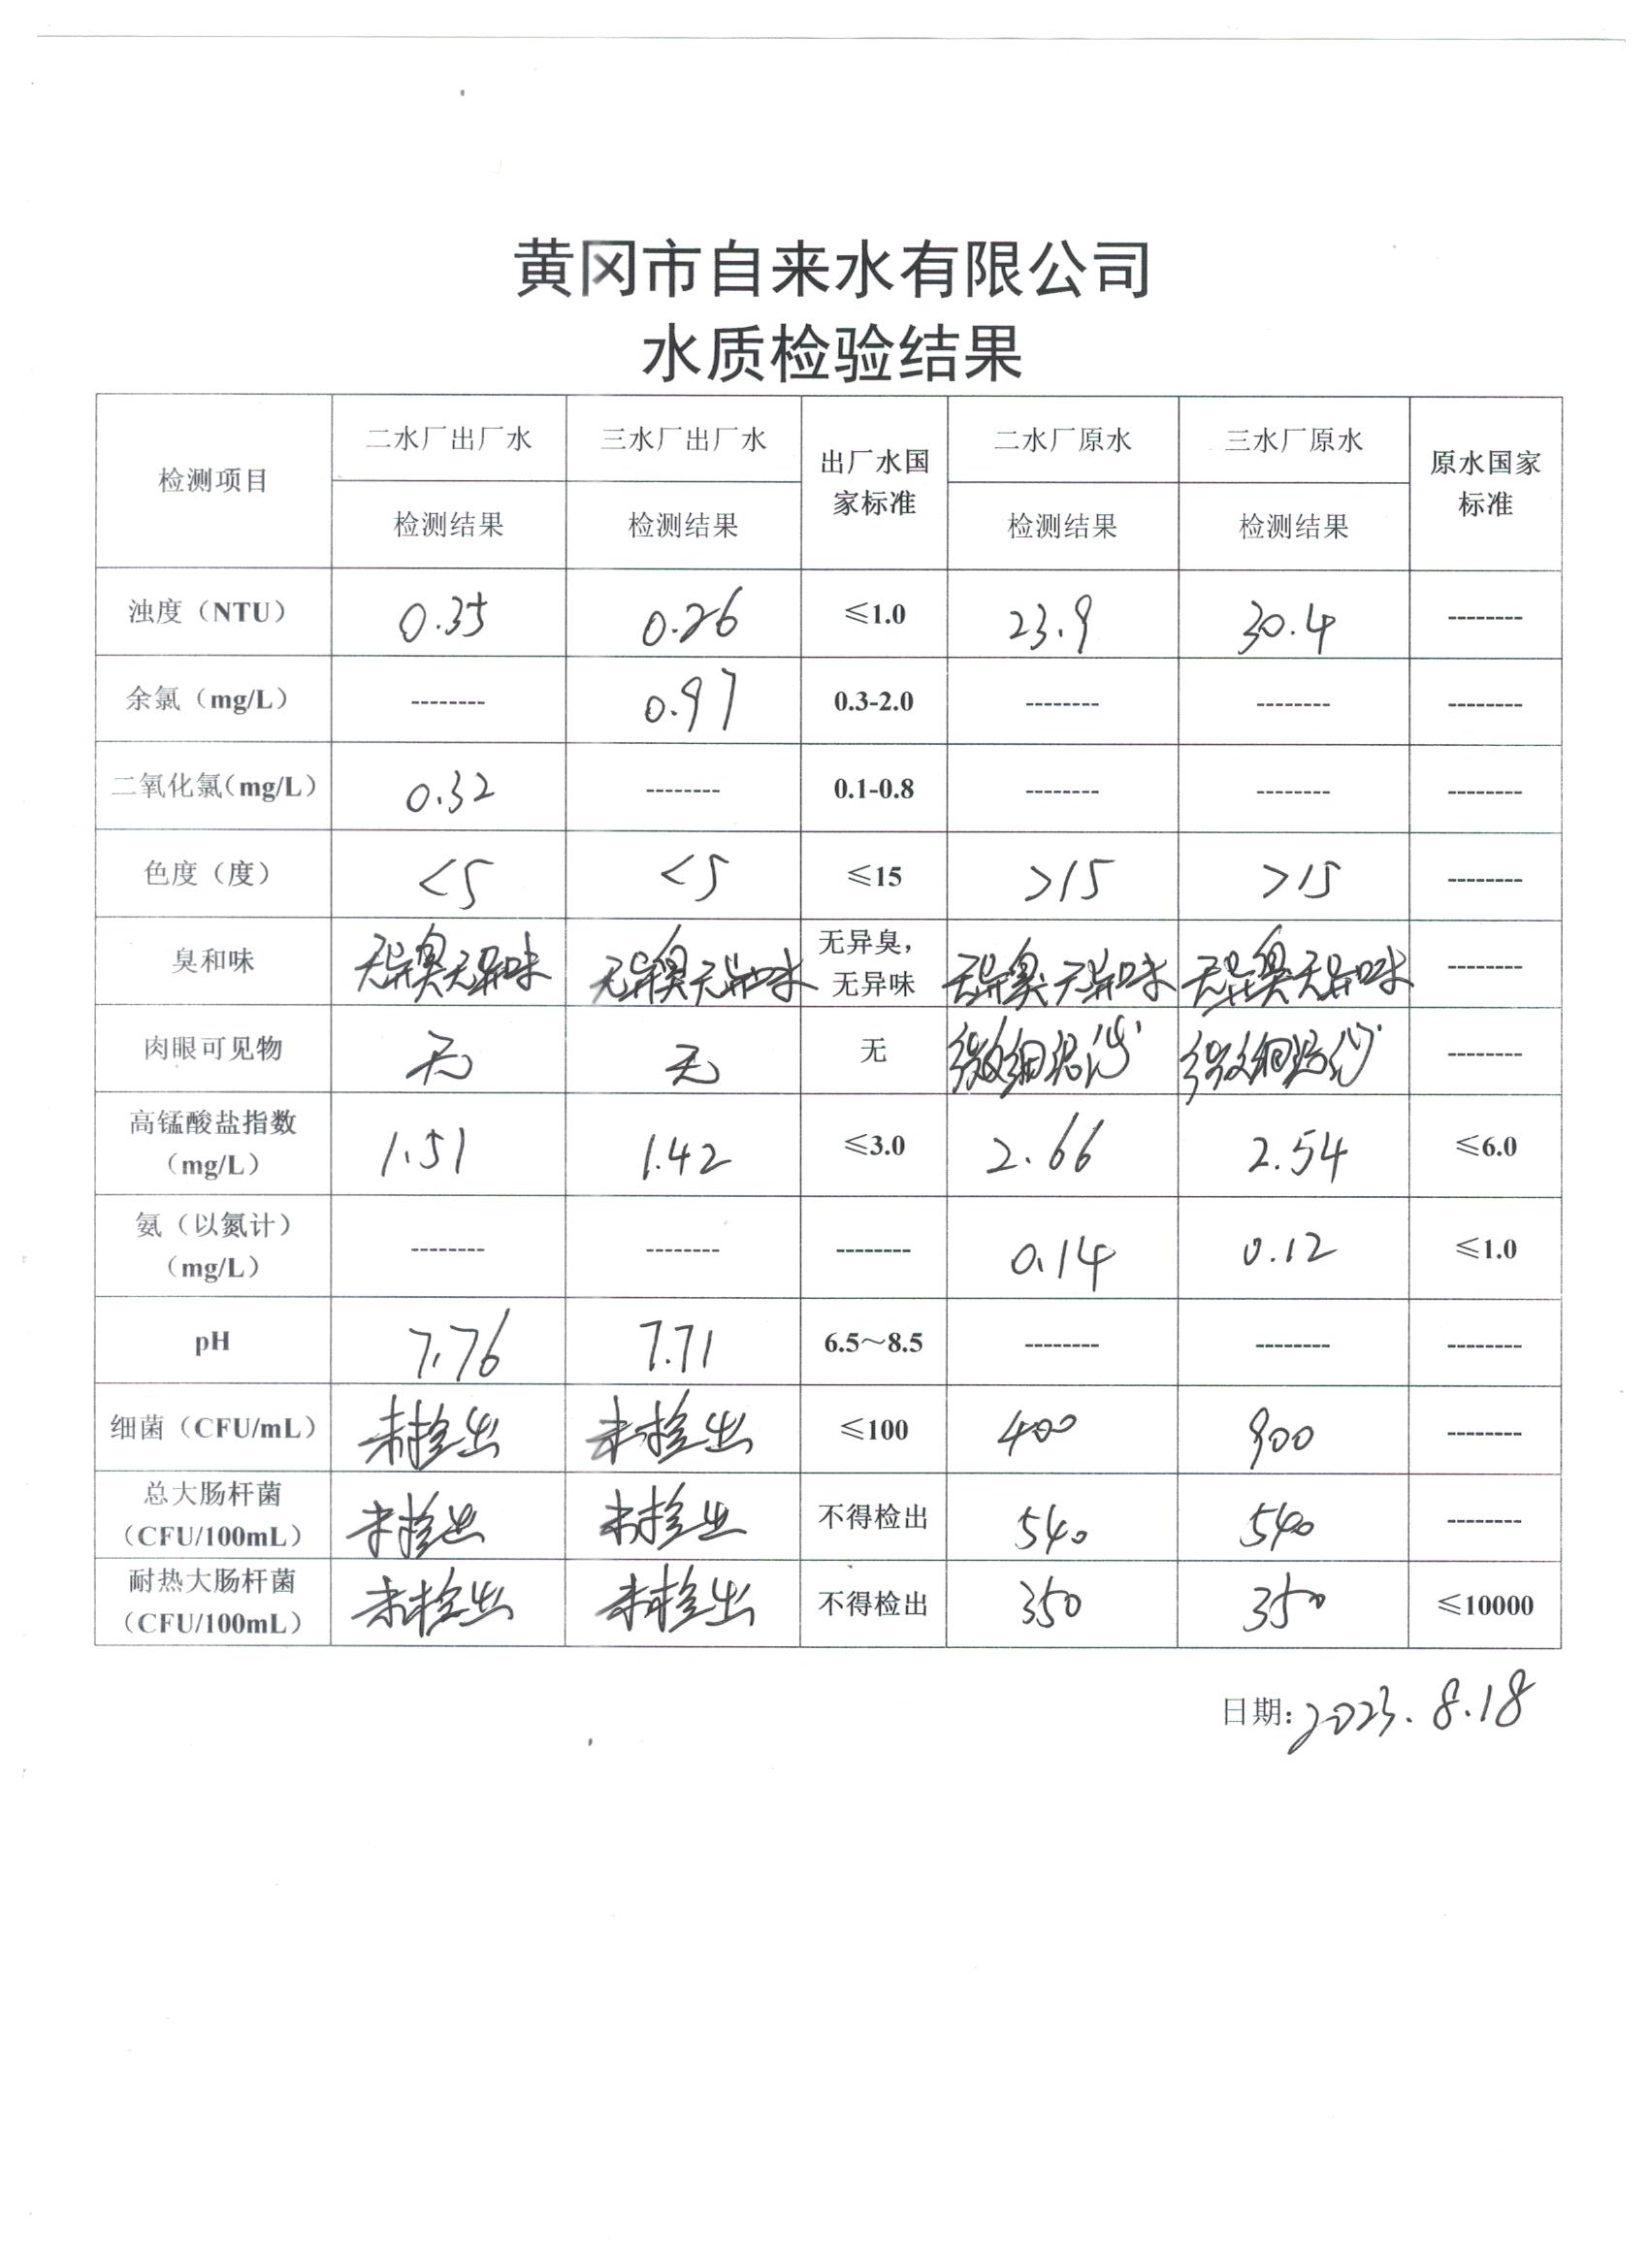 黄冈市自来水有限公司
水质检验结果
检测项目 二水厂出厂水 三水厂出厂水 出厂水国家标准 二水厂原水 三水厂原水 原水国家标准
检测结果 检测结果 检测结果 检测结果
浊度（NTU） 0.35 0.26 ≤1.0 23.9 30.4 --------
余氯（mg/L） -------- 0.97 0.3-2.0 -------- -------- --------
二氧化氯（mg/L） 0.32 -------- 0.1-0.8 -------- -------- --------
色度（度） <5 <5 ≤15 >15 >15 --------
臭和味 无异臭无异味 无异臭无异味 无异臭，无异味 无异臭无异味 无异臭无异味 --------
肉眼可见物 无 无 无 微细泥沙 微细泥沙 --------
高锰酸盐指数（mg/L） 1.51 1.42 ≤3.0 2.66 2.54 ≤6.0
氨（以氮计）（mg/L） -------- -------- -------- 0.14 0.12 ≤1.0
pH 7.76 7.71 6.5～8.5 -------- -------- --------
细菌（CFU/mL） 未检出 未检出 ≤100 400 900 --------
总大肠杆菌（CFU/100mL） 未检出 未检出 不得检出 540 540 --------
耐热大肠杆菌（CFU/100mL） 未检出 未检出 不得检出 350 350 ≤10000
日期：2023.8.18